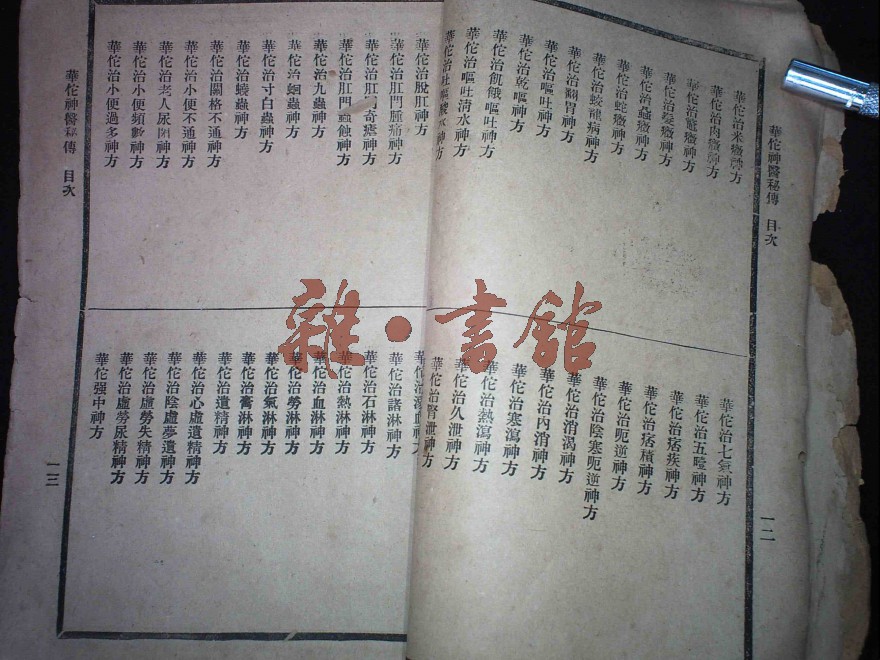 華佗神醫秘傳 目次
一二
華佗治米癥神方
華佗治肉癥神方
華佗治鱉癥神方
華佗治髮癥神方
華佗治蟲癥神方
華佗治蛇癥神方
華佗治蛟龍病神方
華佗治翻胃神方
華佗治嘔吐神方
華佗治乾嘔神方
華佗治飢餓嘔吐神方
華佗治嘔吐清水神方
華佗治吐嘔酸水神方
華佗治七氣神方
華佗治五噎神方
華佗治痞疾神方
華佗治痞積神方
華佗治呃逆神方
華佗治陰寒呃逆神方
華佗治消渴神方
華佗治內消神方
華佗治寒瀉神方
華佗治熱瀉神方
華佗治久泄神方
華佗治腎泄神方
華佗治脫肛神方
華佗治肛門腫痛神方
華佗治肛門奇癢神方
華佗治肛門蟲蝕神方
華佗治九蟲神方
華佗治蛔蟲神方
華佗治寸白蟲神方
華佗治蟯蟲神方
華佗治關格不通神方
華佗治小便不通神方
華佗治老人尿閉神方
華佗治小便頻數神方
華佗治小便過多神方
華佗治溺血神方
華佗治諸淋神方
華佗治石淋神方
華佗治熱淋神方
華佗治血淋神方
華佗治勞淋神方
華佗治氣淋神方
華佗治膏淋神方
華佗治遺精神方
華佗治心虛遺精神方
華佗治陰虛夢遺神方
華佗治虛勞失精神方
華佗治虛勞尿精神方
華佗强中神方
華佗神醫秘傳 目次
一三
雜·書館